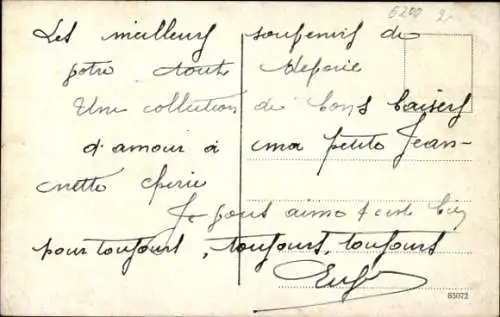 6200 2
Les meilleurs soupenirs de
potre toute
Une collection de bons baisers
d'amour à ma petite Jean-
nette cherie
Je pous aime & c'est bien
pour toujours, toujours, toujours
85072